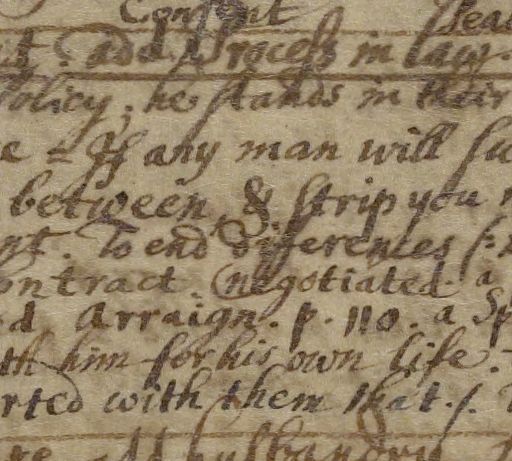 Consent
add Process in law.
policy; he stands in their
e = If any man will su
between, & strip you
nt. To end differences
ontract. negotiated a
d Arraign. p. 110. a Sp
th him for his own life.
rted with them that.
husbandry